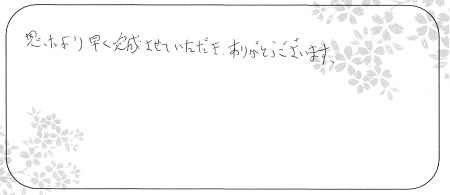 思ったより早く完成させていただき、ありがとうございます。